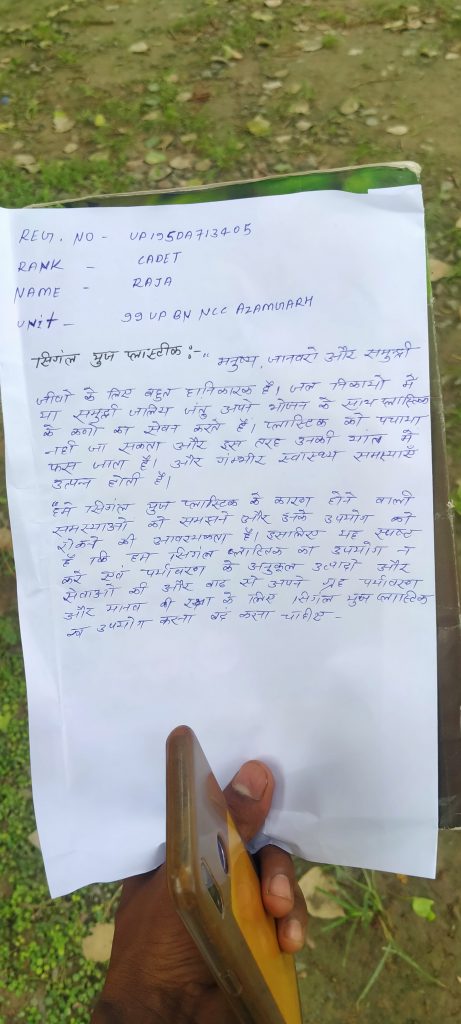 REG. NO - UP19SDA713405
RANK - CADET
NAME - RAJA
UNIT - 99 UP BN NCC AZAMGARH
सिगंल युज प्लास्टीक :- " मनुष्य, जानवरो और समुन्द्री
जीवो के लिए बहुत हानिकारक है। जल निकायो में
या समुद्री जलिय जंतु अपने भोजन के साथ प्लास्टिक
के कणों का सेवन करते है। प्लास्टिक को पचाया
नहीं जा सकता और इस तरह उनकी आंत में
फस जाता है। और गंम्भीर स्वास्थ्य समस्याएँ
उत्पन्न होती है।
हमे सिगंल युज प्लास्टिक के कारण होने वाली
समस्याओं को समझने और उनके उपयोग को
रोकने की आवश्यकता है। इसलिए यह स्पष्ट
है कि हम सिगंल प्लास्टिक का उपयोग न
करे एवं पर्यावरण के अनुकूल उत्पादो और
सेवाओं की और बाद से अपने ग्रह पर्यावरण
और मानव की रक्षा के लिए सिगंल युज प्लास्टिक
का उपयोग करना बंद करना चाहिए -